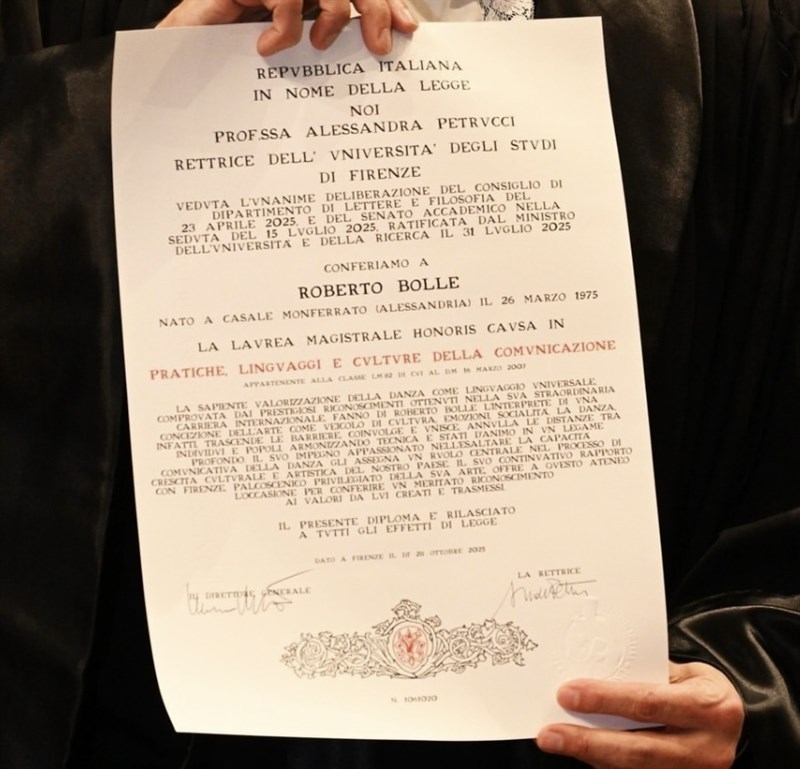 REPVBBLICA ITALIANA
IN NOME DELLA LEGGE
NOI
PROF.SSA ALESSANDRA PETRVCCI
RETTRICE DELL' VNIVERSITA' DEGLI STVDI
DI FIRENZE
VEDVTA L'VNANIME DELIBERAZIONE DEL CONSIGLIO DI
DIPARTIMENTO DI LETTERE E FILOSOFIA DEL
23 APRILE 2025, E DEL SENATO ACCADEMICO NELLA
SEDVTA DEL 15 LVGLIO 2025, RATIFICATA DAL MINISTRO
DELL'VNIVERSITÀ E DELLA RICERCA IL 31 LVGLIO 2025
CONFERIAMO A
ROBERTO BOLLE
NATO A CASALE MONFERRATO (ALESSANDRIA) IL 26 MARZO 1975
LA LAVREA MAGISTRALE HONORIS CAVSA IN
PRATICHE, LINGVAGGI E CVLTVRE DELLA COMVNICAZIONE
APPARTENENTE ALLA CLASSE LM-92 DI CVI AL D.M. 16 MARZO 2007
LA SAPIENTE VALORIZZAZIONE DELLA DANZA COME LINGVAGGIO VNIVERSALE,
COMPROVATA DAI PRESTIGIOSI RICONOSCIMENTI OTTENVTI NELLA SVA STRAORDINARIA
CARRIERA INTERNAZIONALE, FANNO DI ROBERTO BOLLE L'INTERPRETE DI VNA
CONCEZIONE DELL'ARTE COME VEICOLO DI CVLTVRA, EMOZIONI, SOCIALITÀ. LA DANZA,
INFATTI, TRASCENDE LE BARRIERE, COINVOLGE E VNISCE, ANNVLLA LE DISTANZE TRA
INDIVIDVI E POPOLI ARMONIZZANDO TECNICA E STATI D'ANIMO IN VN LEGAME
PROFONDO. IL SVO IMPEGNO APPASSIONATO NELL'ESALTARE LA CAPACITÀ
COMVNICATIVA DELLA DANZA GLI ASSEGNA VN RVOLO CENTRALE NEL PROCESSO DI
CRESCITA CVLTVRALE E ARTISTICA DEL NOSTRO PAESE. IL SVO CONTINVATIVO RAPPORTO
CON FIRENZE, PALCOSCENICO PRIVILEGIATO DELLA SVA ARTE, OFFRE A QVESTO ATENEO
L'OCCASIONE PER CONFERIRE VN MERITATO RICONOSCIMENTO
AI VALORI DA LVI CREATI E TRASMESSI.
IL PRESENTE DIPLOMA E' RILASCIATO
A TVTTI GLI EFFETTI DI LEGGE
DATO A FIRENZE IL DI' 28 OTTOBRE 2025
IL DIRETTORE GENERALE
LA RETTRICE
N.